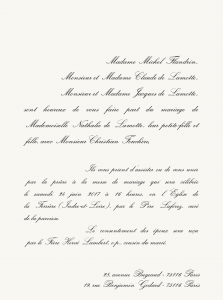 Madame Michel Flandrin,
Monsieur et Madame Claude de Lamotte,
Monsieur et Madame Jacques de Lamotte,
sont heureux de vous faire part du mariage de
Mademoiselle Nathalie de Lamotte, leur petite-fille et
fille, avec Monsieur Christian
Ils vous prient d'assister ou de vous unir
par la prière à la messe de mariage qui sera célébrée
le samedi 24 juin 2017 à 16 heures, en l'Eglise de
la Ferrière (Indre-et-Loire), par le Père Laforez, curé
de la paroisse.
Le consentement des époux sera reçu
par le Frère Hervé Lambert, o.p., cousin du marié.
avenue Bugeaud - 75116 Paris
19, rue Benjamin Godard - 75116 Paris